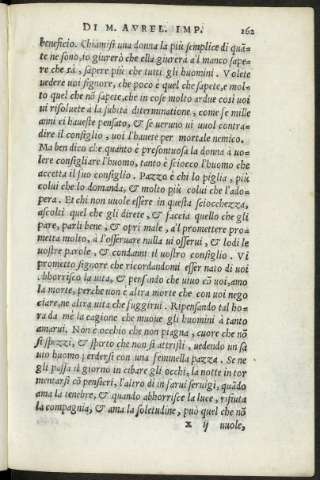 DI M. AVREL. IMP. 262
beneficio. Chiamisi una donna la più semplice di quã-
te ne sono, io giurerò che ella giurerà al manco sape-
re che sà, sapere più che tutti gli huomini. Volete
uedere uoi signore, che poco è quel che sapete, e mol-
to quel che nõ sapete, che in cose molto ardue così uoi
ui risoluete à la subita diterminatione, come se mille
anni ci haueste pensato, & se ueruno ui uuol contra-
dire il consiglio, uoi l'hauete per mortale nemico.
Ma ben dico che quãto è presontuosa la donna à uo-
lere consigliare l'huomo, tanto è sciocco l'huomo che
accetta il suo consiglio. Pazzo è chi lo piglia, più
colui che lo domanda, & molto più colui che l'ado-
pera. Et chi non uuole essere in questa sciocchezza,
ascolti quel che gli direte, & faccia quello che gli
pare, parli bene, & opri male, al promettere pro-
metta molto, à l'osseruare nulla ui osserui, & lodi le
uostre parole, & condanni il uostro consiglio. Vi
prometto signore che ricordandomi esser nato di uoi
abborrisco la uita, & pensando che uiuo cõ uoi, amo
la morte, perche non è altra morte che con uoi nego
ciare, ne altra uita che fuggirui. Ripensando tal ho-
ra da mè la cagione che muoue gli huomini à tanto
amarui. Non è occhio che non piagna, cuore che nõ
si spezzi, & spirto che non si attristi, uedendo un sa
uio huomo perdersi con una feminella pazza. Se ne
gli passa il giorno in cibare gli occhi, la notte in tor
mentarsi cõ pensieri, l'altro di in farui seruigi, quãdo
ama la tenebre, & quando abhorrisce la luce, rifiuta
la compagnia, & ama la solitudine, può quel che nõ
x ij uuole,